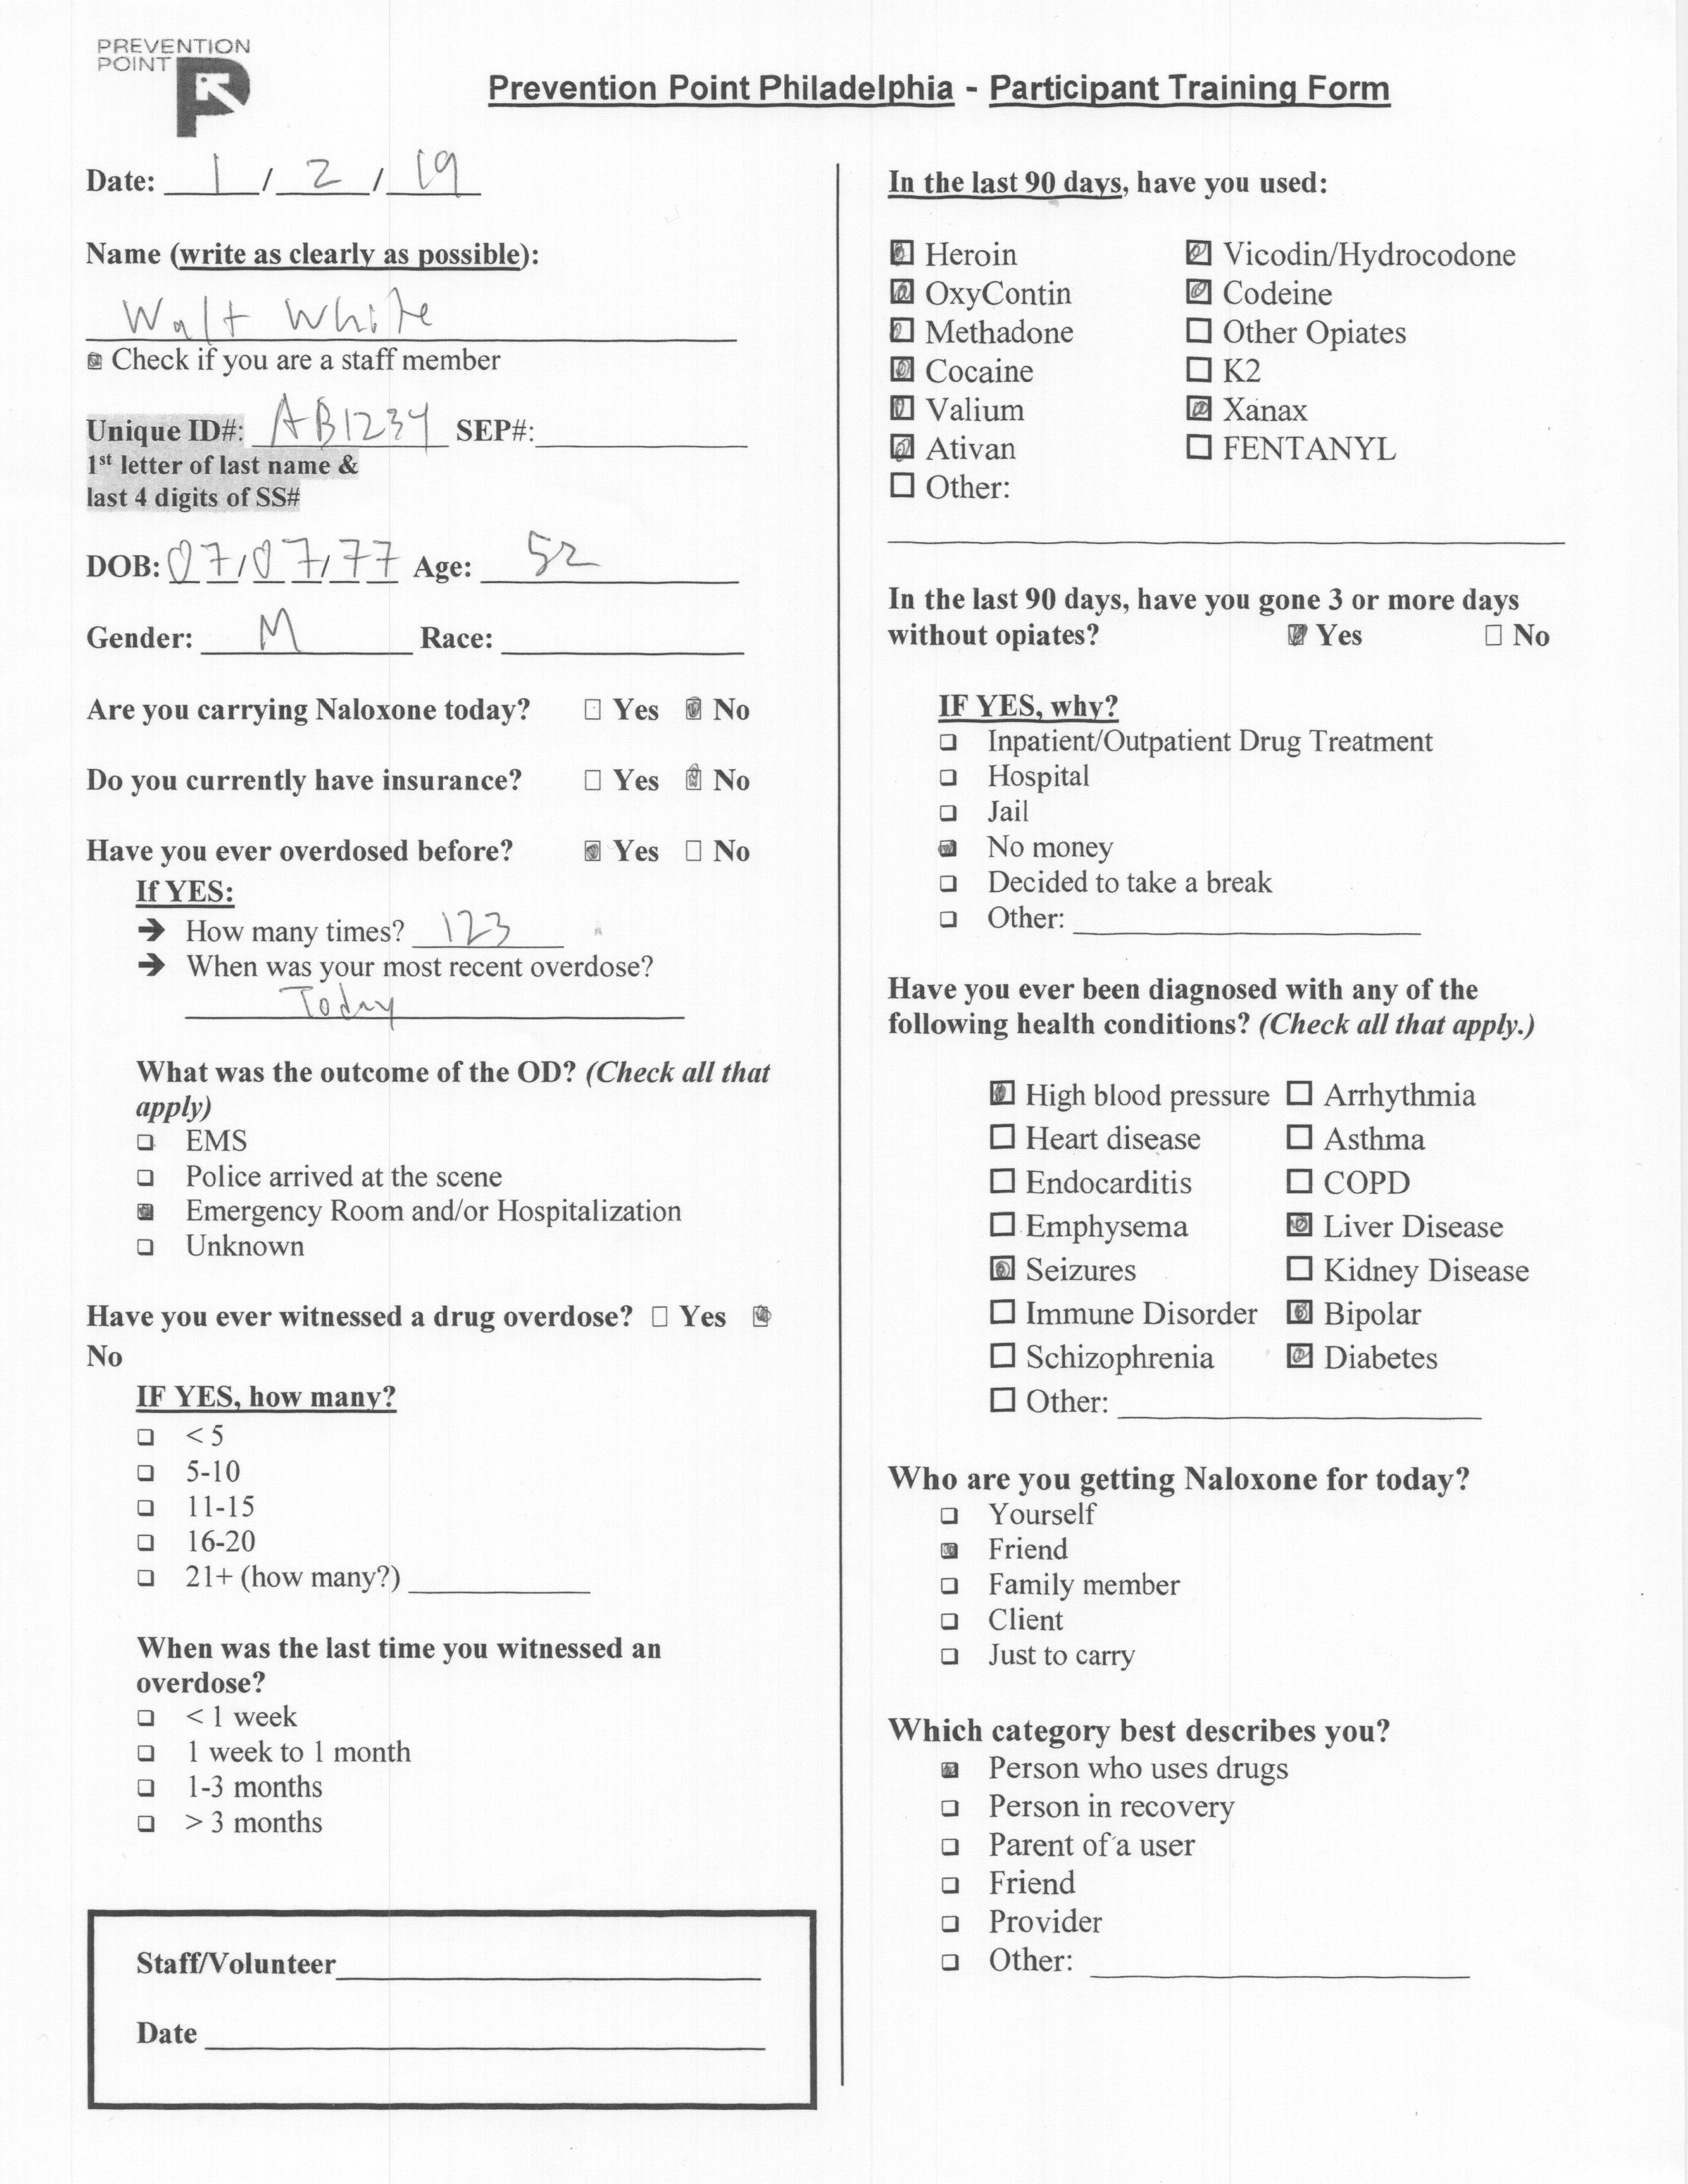 PREVENTION
POINT
Prevention Point Philadelphia - Participant Training Form
Date: 1 / 2 / 19
Name (write as clearly as possible):
Walt White
Check if you are a staff member
Unique ID#: AB1234 SEP#:
1st letter of last name &
last 4 digits of SS#
DOB: 07/07/77 Age: 52
Gender: M Race:
Are you carrying Naloxone today? Yes No
Do you currently have insurance? Yes No
Have you ever overdosed before? Yes No
If YES:
➔ How many times? 123
➔ When was your most recent overdose?
Today
What was the outcome of the OD? (Check all that
apply)
EMS
Police arrived at the scene
Emergency Room and/or Hospitalization
Unknown
Have you ever witnessed a drug overdose? Yes
No
IF YES, how many?
< 5
5-10
11-15
16-20
21+ (how many?)
When was the last time you witnessed an
overdose?
< 1 week
1 week to 1 month
1-3 months
> 3 months
Staff/Volunteer
Date
In the last 90 days, have you used:
Heroin Vicodin/Hydrocodone
OxyContin Codeine
Methadone Other Opiates
Cocaine K2
Valium Xanax
Ativan FENTANYL
Other:
In the last 90 days, have you gone 3 or more days
without opiates? Yes No
IF YES, why?
Inpatient/Outpatient Drug Treatment
Hospital
Jail
No money
Decided to take a break
Other:
Have you ever been diagnosed with any of the
following health conditions? (Check all that apply.)
High blood pressure Arrhythmia
Heart disease Asthma
Endocarditis COPD
Emphysema Liver Disease
Seizures Kidney Disease
Immune Disorder Bipolar
Schizophrenia Diabetes
Other:
Who are you getting Naloxone for today?
Yourself
Friend
Family member
Client
Just to carry
Which category best describes you?
Person who uses drugs
Person in recovery
Parent of a user
Friend
Provider
Other: